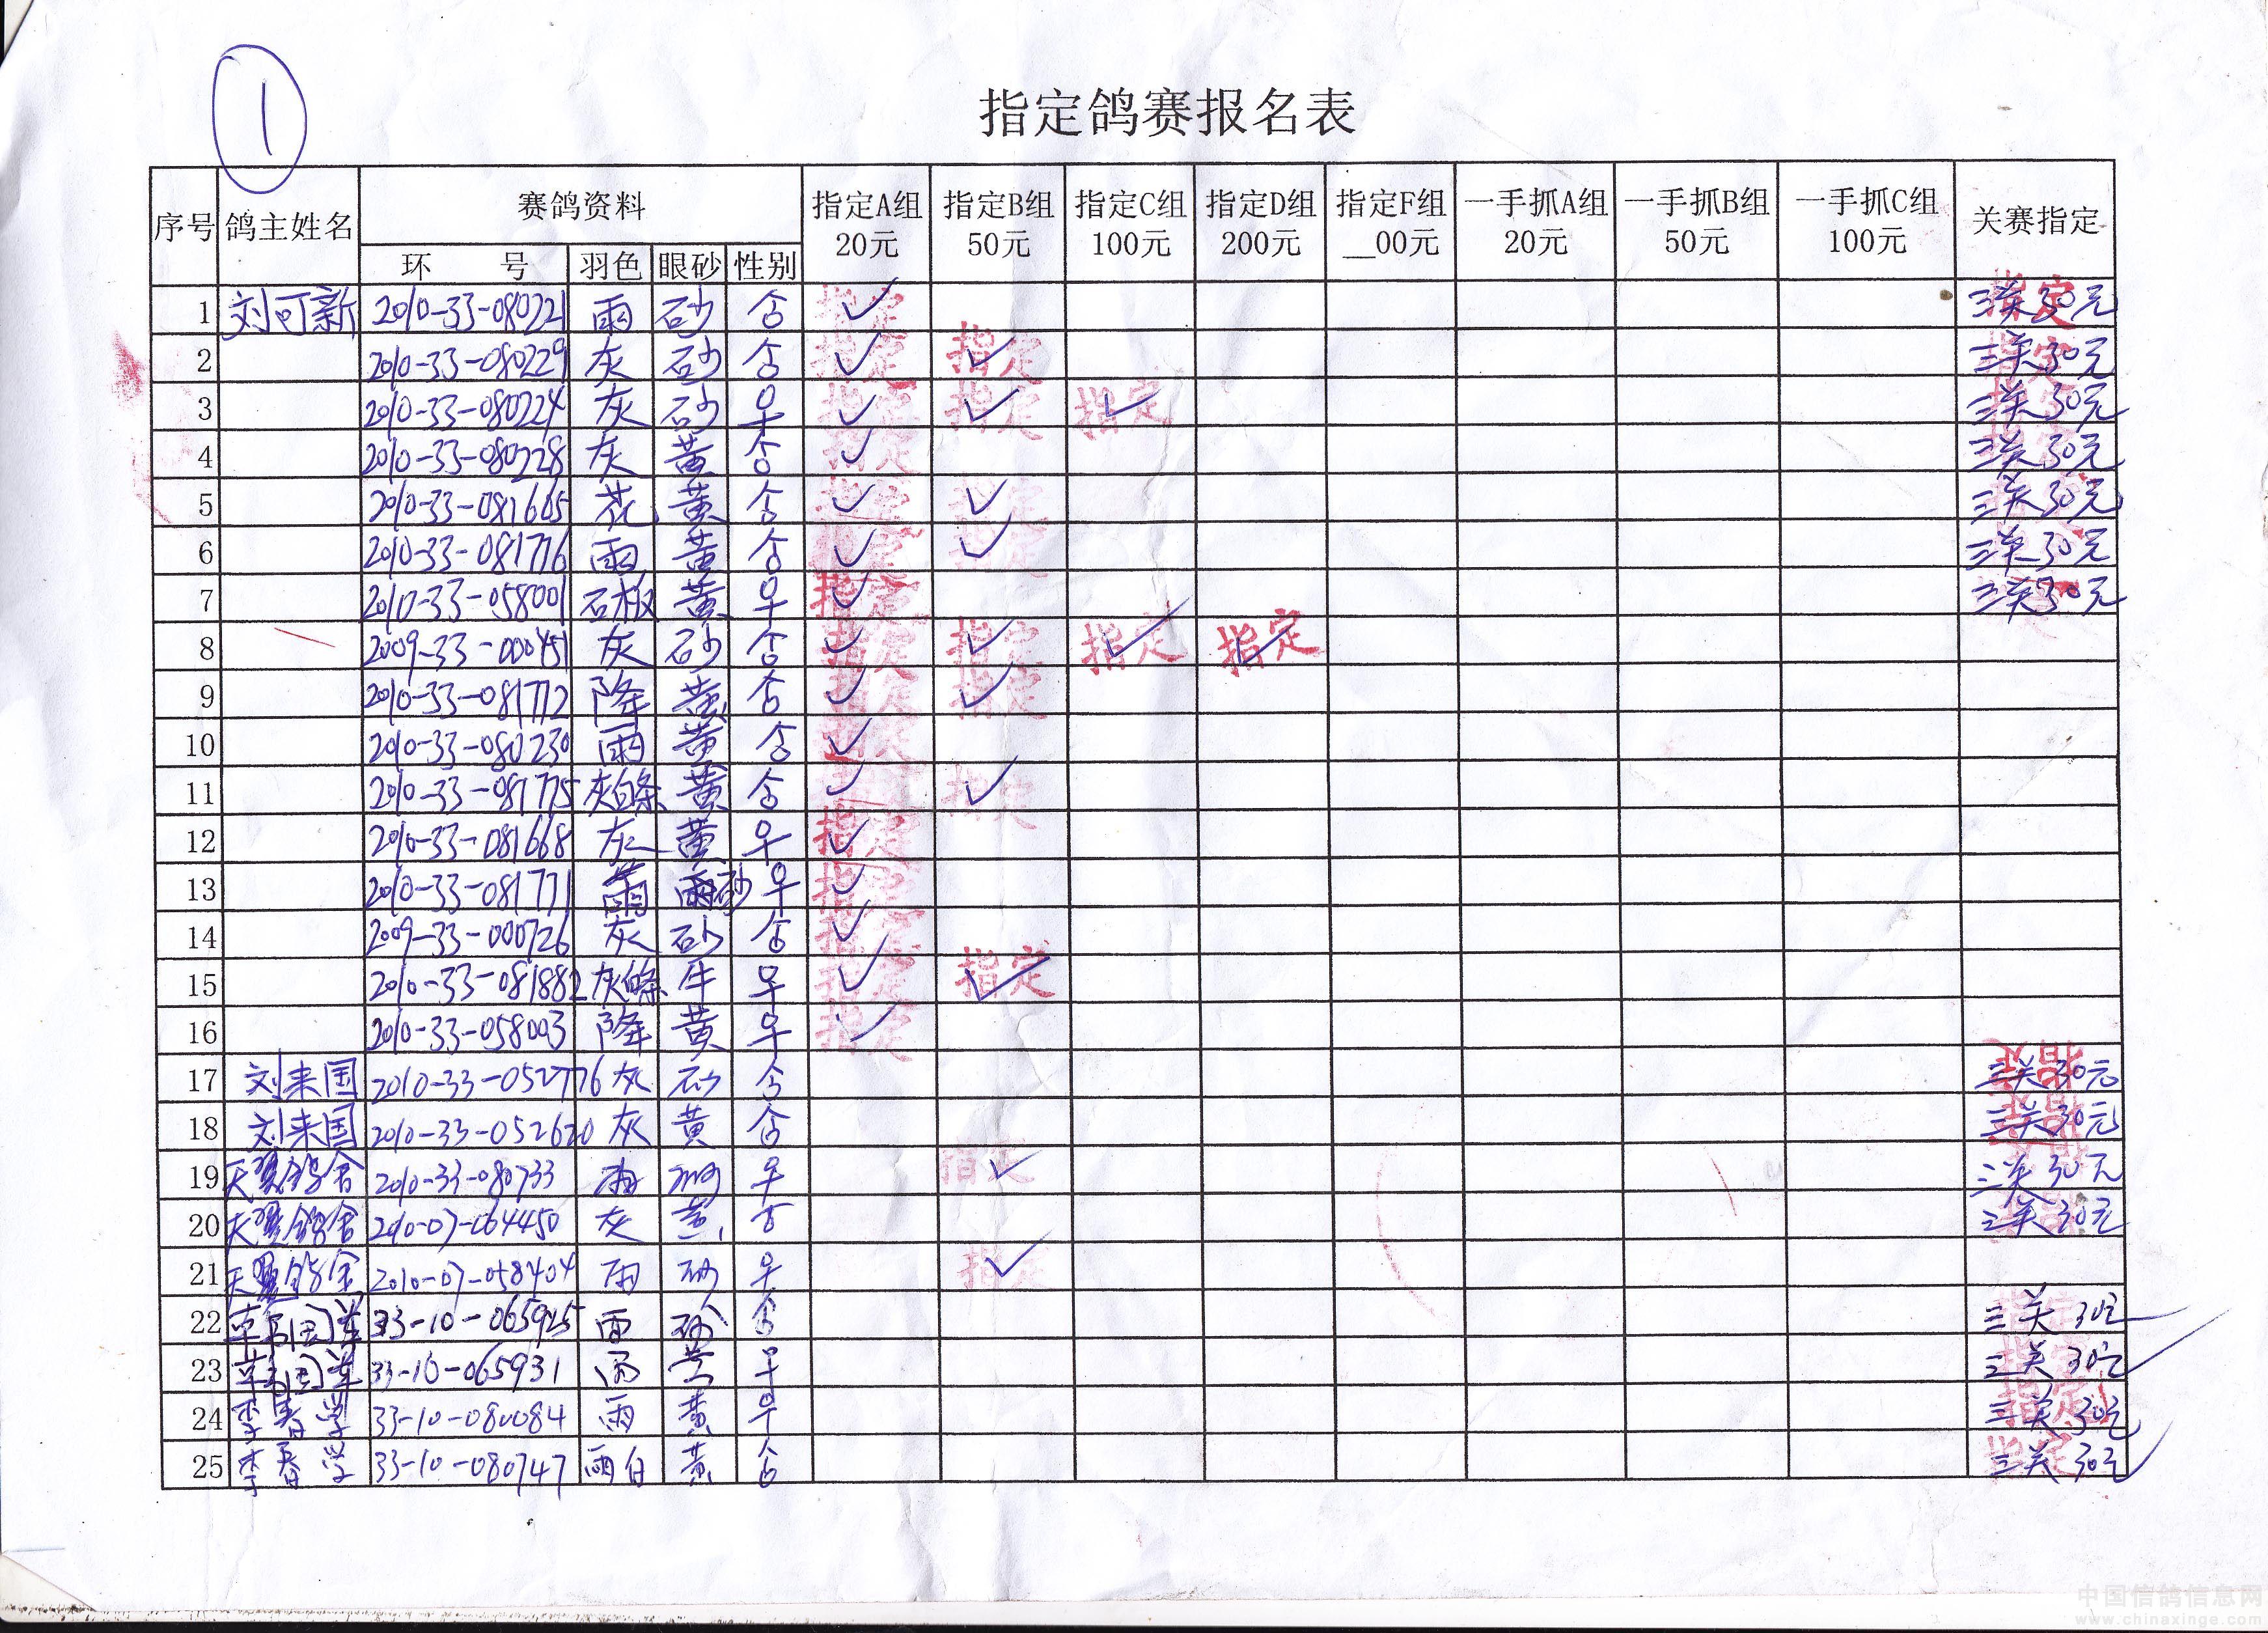 1
指定鸽赛报名表
序号 鸽主姓名 赛鸽资料 指定A组 20元 指定B组 50元 指定C组 100元 指定D组 200元 指定F组 __00元 一手抓A组 20元 一手抓B组 50元 一手抓C组 100元 关赛指定
环 号 羽色 眼砂 性别
1 刘可新 2010-33-080221 雨 砂 ✓ 指定 三关30元 指定
2 2010-33-080229 灰 砂 ✓ 指定 ✓ 指定 三关30元
3 2010-33-080224 灰 砂 ♀ ✓ 指定 ✓ 指定 ✓ 指定 三关30元
4 2010-33-080228 灰 黄 ✓ 指定 三关30元
5 2010-33-081665 花 黄 ✓ 指定 ✓ 指定 三关30元
6 2010-33-081776 雨 黄 ✓ ✓ 三关30元
7 2010-33-058001 石板 黄 ♀ ✓ 指定 三关30元
8 2009-33-000451 灰 砂 ✓ 指定 ✓ 指定 ✓ 指定 ✓ 指定
9 2010-33-081772 降 黄 ✓ 指定 ✓ 指定
10 2010-33-080230 雨 黄 ✓
11 2010-33-081775 灰白条 黄 ✓ ✓ 指定
12 2010-33-081668 灰 黄 ♀ ✓ 指定
13 2010-33-081771 雨 砂 ♀ ✓ 指定
14 2009-33-000726 灰 砂 ✓ 指定
15 2010-33-081882 灰白條 牛 ♀ ✓ 指定 ✓ 指定
16 2010-33-058003 降 黄 ♀ ✓ 指定
17 刘来国 2010-33-052776 灰 砂 三关30元 指定
18 刘来国 2010-33-052620 灰 黄 三关30元
19 天翼鸽舍 2010-33-080733 雨 ♀ ✓ 指定 三关30元
20 天翼鸽舍 2010-07-064450 灰 黄 三关30元
21 天翼鸽舍 2010-07-058404 雨 砂 ♀ ✓ 指定
22 33-10-065925 雨 砂 三关 30元
23 33-10-065931 雨 黄 ♀ 三关 30元
24 李春学 33-10-080084 雨 黄 ♀ 三关 30元 指定
25 李春学 33-10-080747 雨白 黄 三关 30元 指定
中国信鸽信息网
www.chinaxinge.com